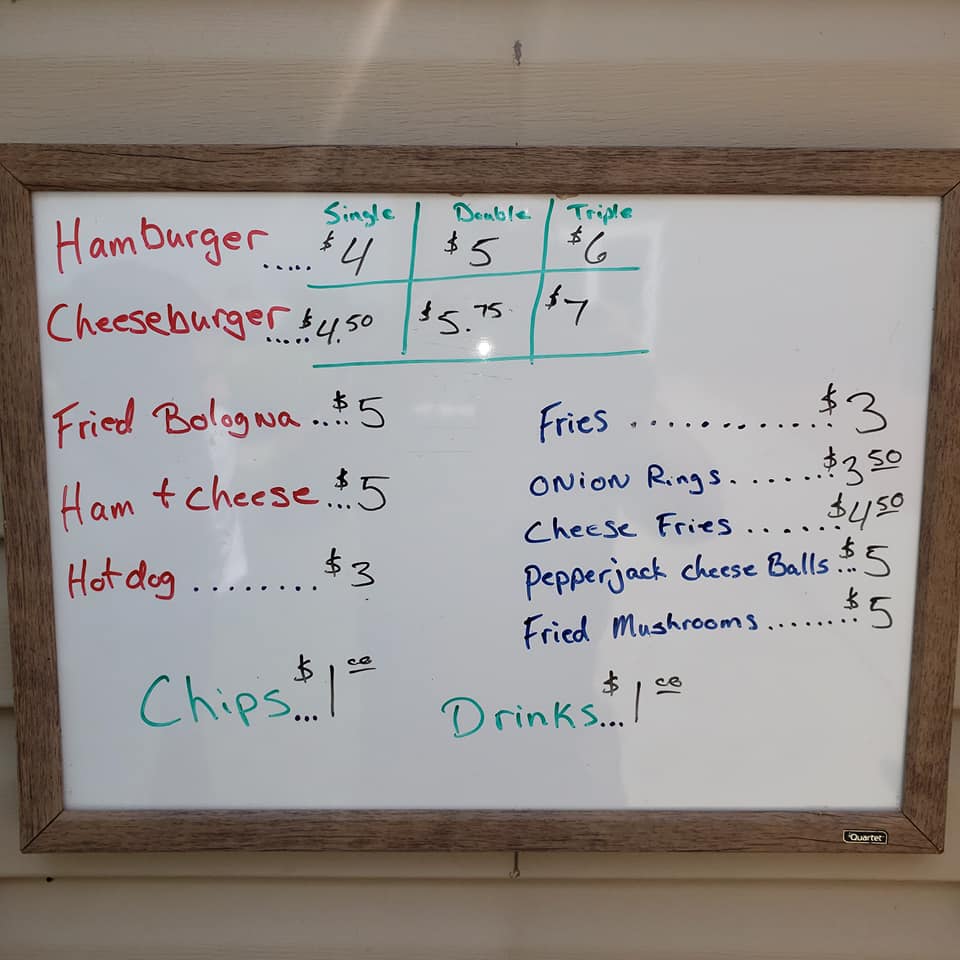 Single Double Triple
Hamburger ..... $4 $5 $6
Cheeseburger ..... $4.50 $5.75 $7
Fried Bologna .... $5
Ham + cheese ... $5
Hotdog ........ $3
Fries ............. $3
Onion Rings ....... $3 50
Cheese Fries ...... $4 50
Pepperjack cheese Balls ... $5
Fried Mushrooms ........ $5
Chips ... $1 00
Drinks ... $1 00
Quartet